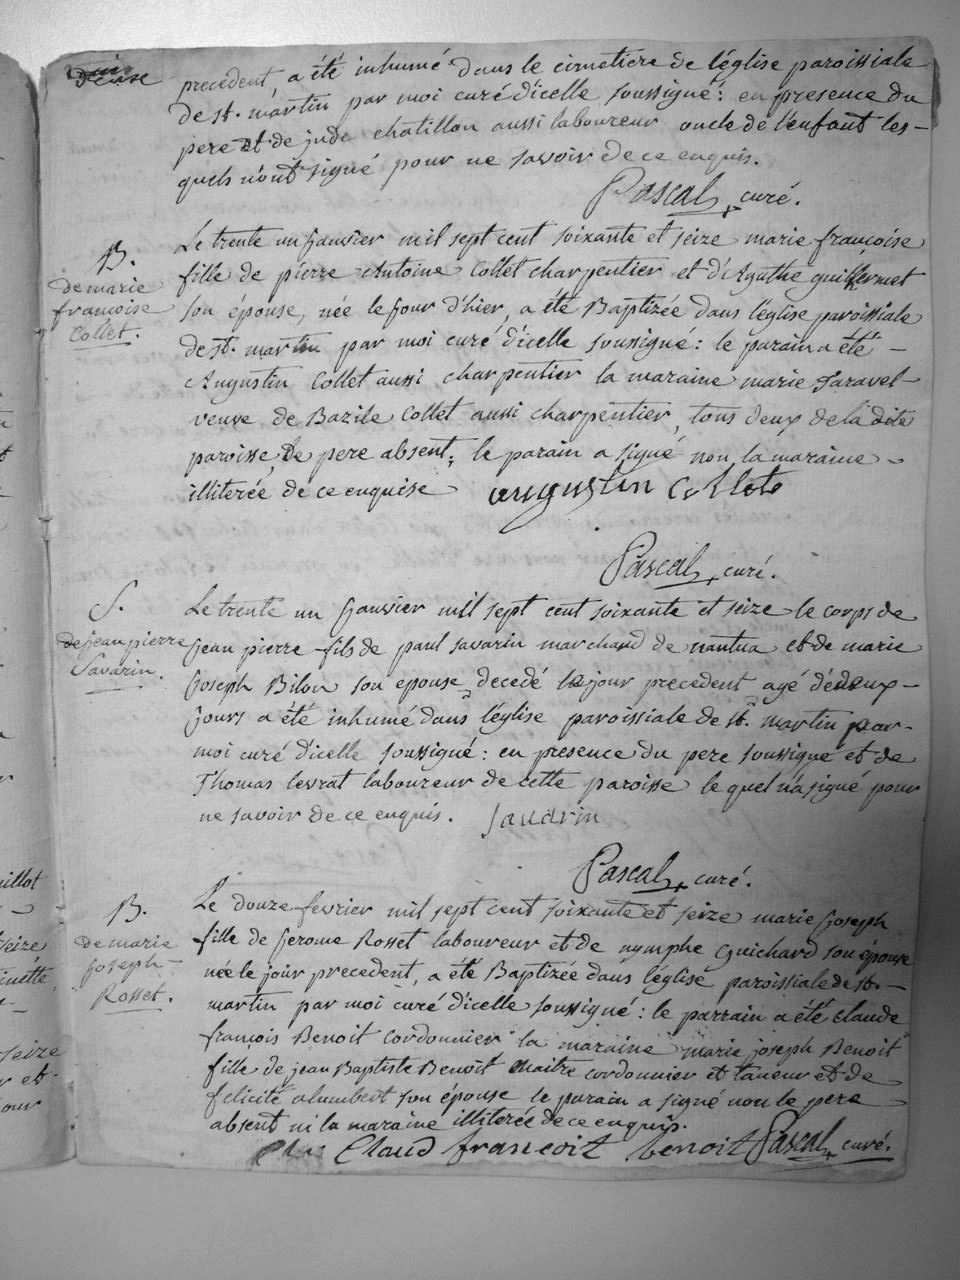 precedent, a été inhumé dans le cimetiere de l'église paroissiale
de st. martin par moi curé d'icelle soussigné: en presence du
pere et de jude chatillon aussi laboureur oncle de l'enfant les-
quels n'ont signé pour ne savoir de ce enquis.
Pascal curé.
B.
de marie
françoise
Collet.
Le trente un Janvier mil sept cent soixante et seize marie françoise
fille de pierre Antoine Collet charpentier et d'Agathe guillermet
son épouse, née le jour d'hier, a été Baptizée dans l'église paroissiale
de st. martin par moi curé d'icelle soussigné: le parain a été -
Augustin Collet aussi charpentier la maraine marie taravel -
veuve de Bazile Collet aussi charpentier, tous deux de la dite
paroisse, le pere absent; le parain a signé non la maraine -
illiterée de ce enquise augustin Collet
Pascal curé.
S.
de jean pierre
Savarin.
Le trente un Janvier mil sept cent soixante et seize le corps de
Jean pierre fils de paul savarin marchand de nantua et de marie
Joseph Bilon son epouse decedé le jour precedent agé de deux -
jours a été inhumé dans l'église paroissiale de st. martin par -
moi curé d'icelle soussigné: en presence du pere soussigné et de
Thomas levrat laboureur de cette paroisse le quel n'a signé pour
ne savoir de ce enquis.
Pascal curé.
B.
de marie
Joseph -
Rosset.
Le douze fevrier mil sept cent soixante et seize marie Joseph
fille de Jerome Rosset laboureur et de nymphe Guichard son épouse
née le jour precedent, a été Baptizée dans l'église paroissiale de st. -
martin par moi curé d'icelle soussigné: le parrain a été claude
françois Benoit cordonnier la maraine marie joseph Benoit
fille de jean Baptiste Benoit maitre cordonnier et taneur et de
felicité alumbert son épouse le parain a signé non le pere
absent ni la maraine illiterée de ce enquis.
Claud francoit benoit Pascal curé.